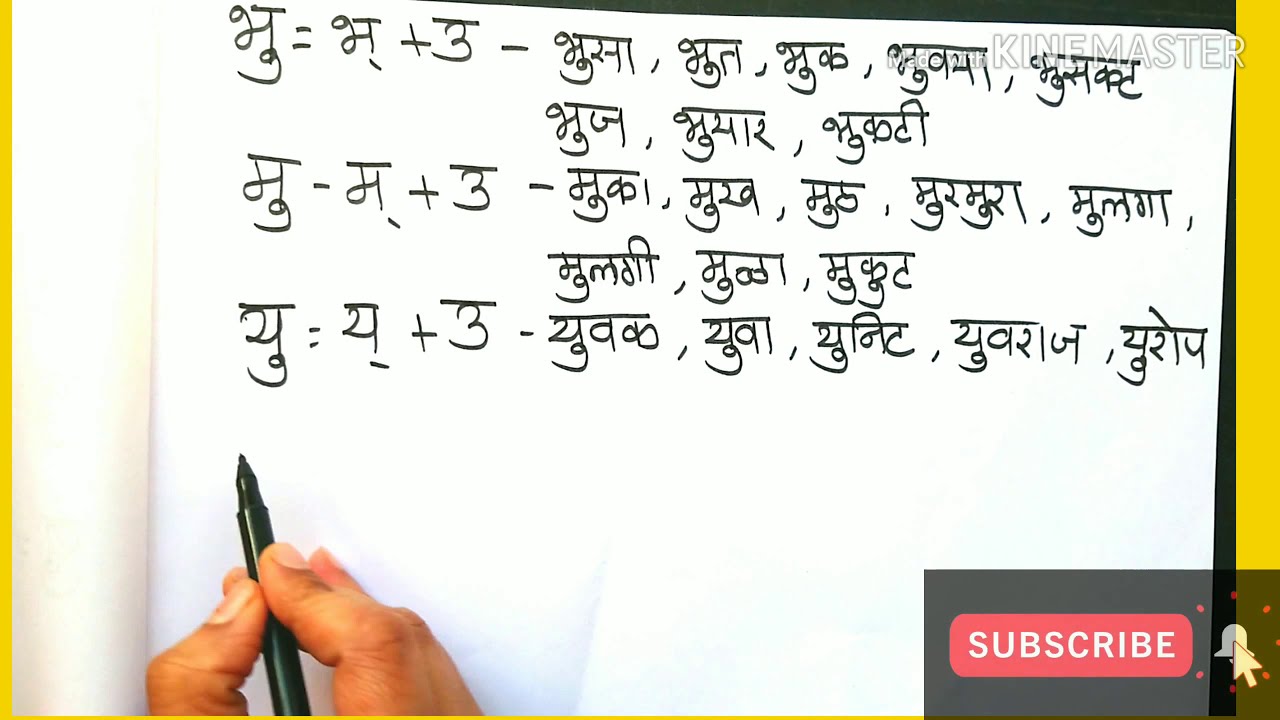 भु = भ् + उ - भुसा, भुत, भुक, भुवया, भुसकट
Made with KINEMASTER
भुज, भुयार, भुकटी
मु - म् + उ - मुका, मुख, मुठ, मुरमुरा, मुलगा,
मुलगी, मुळा, मुकुट
यु = य् + उ - युवक, युवा, युनिट, युवराज, युरोप
SUBSCRIBE